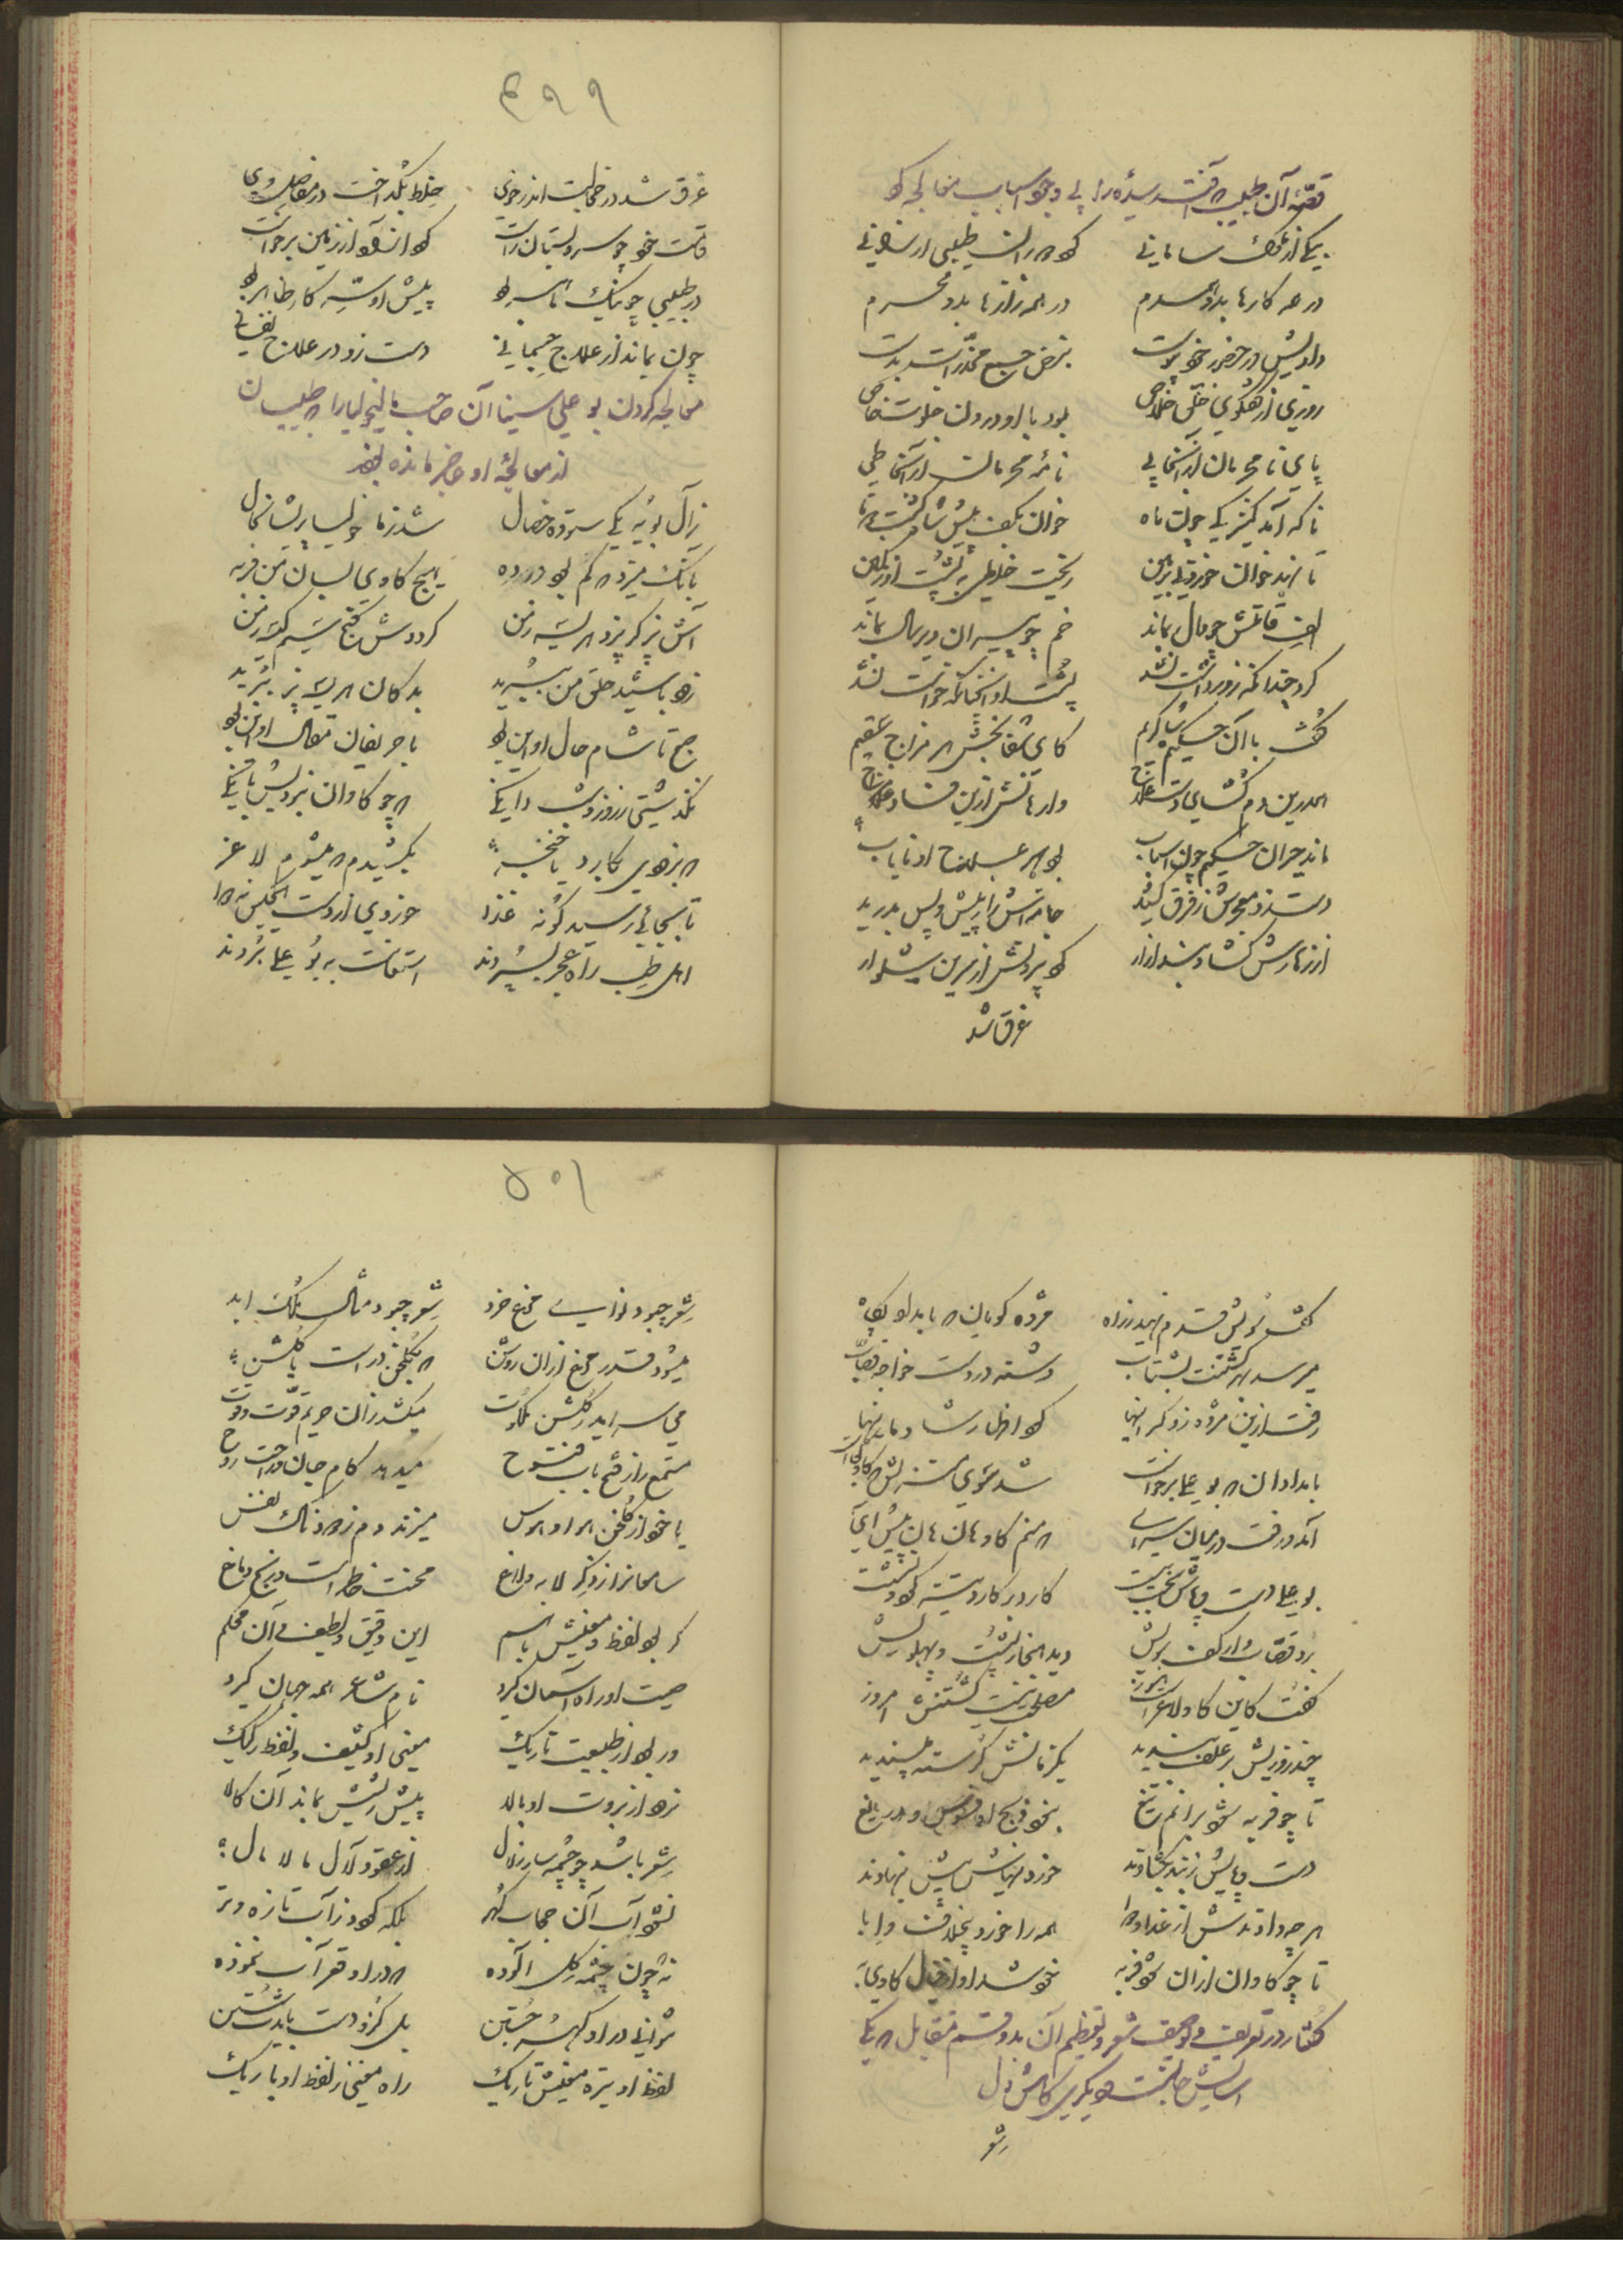 قصهٔ آن طبیب که آفت رسیده را بی وجود اسباب معالجه کرد
یکی از ملوک سامانی که مر او را طبیبی ارزانی
در همه کارها بدو همدم در همه رازها بدو محرم
دادیش در حضر خود پوست بنبض جمیع مخدرات بدست
روزی از همگوی خلق خلاص بود با او درون خلوت خاص
پای نامحرمان از آنجا پی نامهٔ محرمان از آنجا طی
ناگه آمد کنیزکی چون ماه خوان بکف پیش شاه
تا نهد خوان خوردنی بزمین ریخت خلطی به پشت او ز کمین
الف قامتش چو دال بماند خم چو پیران دیر سال بماند
کرد چندانکه زور راست نشد پشت او آنچنانکه خواست نشد
گفت با آن حکیم شاه کریم کای شفا بخش هر مزاج سقیم
اندرین دم گشای دست علاج وارهانش ازین فساد مزاج
ماند حیران حکیم چون اسباب بود بهر علاج او نایاب
دست زد معجرش ز فرق کشید جامه اش را ز پیش و پس بدرید
از ازارش گشاد بند ازار کرد بیرونش از سرین شلوار
غرق شد
۴۹۹
غرق شد در خجالت اندر خوی خلط بگداخت در مفاصل وی
قامت خود چو سرو بستان راست کرد از نو آن زمین برخاست
در طبیبی چو نیک ماهر بود پیش او سر کار ظاهر بود
چون بماند از علاج جسمانی دست زد در علاج نفسانی
معالجه کردن بو علی سینا آن صاحب مالیخولیا را که طبیبان
از معالجهٔ او عاجز مانده بودند
ز آل بویه یکی ستوده خصال شد ز ماخولیا پریشان حال
بانگ میزد که کم بود در ده هیچ گاوی بسان من فربه
آش پز گر پزد هریسه ز من گرددش گنج سیم کیسه ز من
زود باشید حلق من ببرید بدکان هریسه پز ببرید
صبح تا شام حال او این بود با حریفان مقال او این بود
نگذشتی ز روز و شب دانگی که چو گاوان نزدیش بانگی
که بزودی بکارد یا خنجر بکشیدم که میشوم لاغر
تا بجائی رسید کو نه غذا خوردی از دست هیچکس نه دوا
اهل طب راه عجز بسپردند استغاثت به بو علی بردند
گفت سویش قدم نهید ز راه مژده گویان که بامداد پگاه
میرسد بهر کشتنت بشتاب دشنه در دست خواجهٔ قصاب
رفت ازین مژده زو گرانیها کرد اظهار شادمانیها
بامدادان که بو علی برخاست شد سوی منزلش که گاو کجاست
آمد و رفت در میان سرای که منم گاو هان و هان پیش آی
بو علی دست و پاش سخت ببست کارد بر کارد تیز کرد و نشست
برد قصاب وار کف برویش دید هنجار پشت و پهلویش
گفت کاین گاو لاغرست هنوز مصلحت نیست کشتنش امروز
چند روزیش بر علف بندید یکزمانش گرسنه مپسندید
تا چو فربه شود برانم تیغ نبود ذبح او فسوس و دریغ
دست و پایش ز بند بگشادند خوردنیهاش پیش بنهادند
هر چه دادندش از غذا و دوا همه را خورد بیخلاف و ابا
تا چو گاوان از آن شود فربه خود شد او از خیال گاوی به
گفتار در تعریف و توصیف شعر و تقسیم آن بدو قسم متقابل که یکی
آسایش جانست و دیگری کاهش دل
شعر
۵۰۱
شعر چبود نوای مرغ خرد شعر چبود مثال ملک ابد
میشود قدر مرغ از آن روشن که بگلخن درست یا گلشن
می سراید ز گلشن ملکوت میکشد زان حریم قوت و قوت
مستمع را ز فتح باب فتوح میدهد کام جان و راحت روح
یا خود از گلخن هوا و هوس میزند دم ز دودناک نفس
سامعانرا ز ذکر لابه و لاغ محنت خاطرست و رنج دماغ
گر بود لفظ و معنیش باهم این دقیق و لطیف و آن محکم
صیت او راه آسمان گیرد نام شاعر همه جهان گیرد
ور بود از طبیعت تاریک معنی او کثیف و لفظ رکیک
نرود از بروت او بالا پیش ریشش بماند آن کالا
شعر باشد چو چشمه سار زلال از عقود لآل مالامال
نشود آب آن حجاب گهر بلکه گردد ز آب تازه و تر
نه چون چشمه گل آلوده که در او قعر آب ننموده
نتوانی در او گهر جستن بل کزو دست بایدت شستن
لفظ او تیره معنیش تاریک راه معنی ز لفظ او باریک